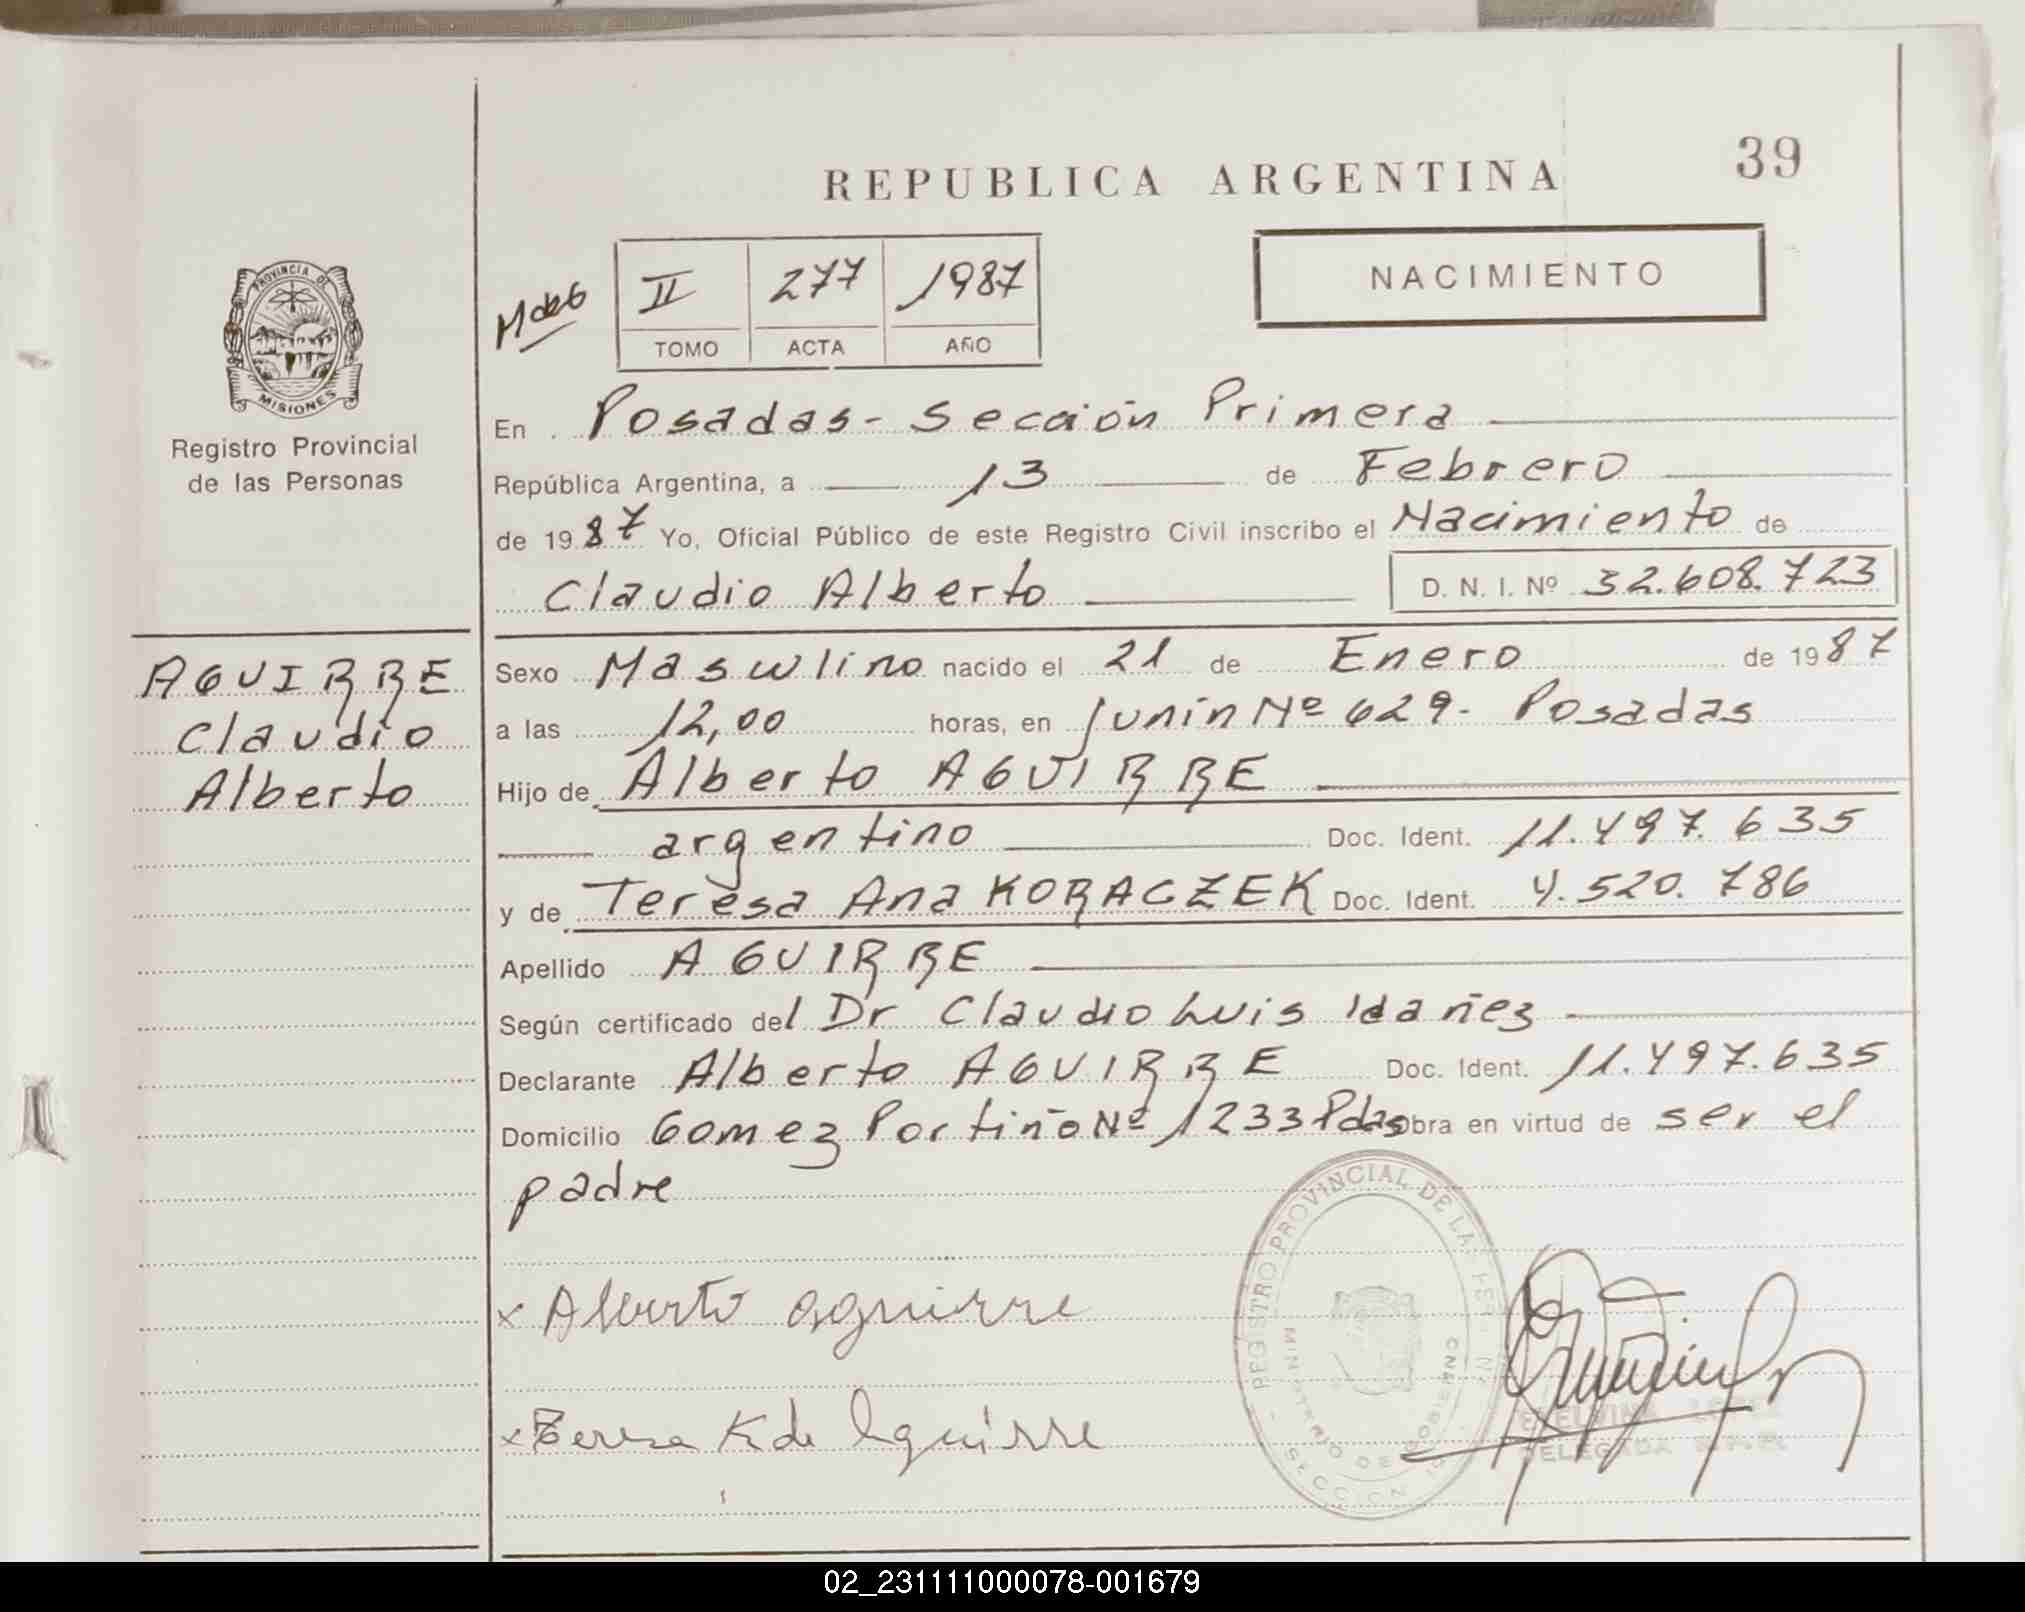 REPUBLICA ARGENTINA
39
II 277 1987
TOMO ACTA AÑO
NACIMIENTO
PROVINCIA DE
MISIONES
Registro Provincial
de las Personas
En Posadas - Sección Primera
República Argentina, a 13 de Febrero
de 1987 Yo, Oficial Público de este Registro Civil inscribo el Nacimiento de
Claudio Alberto D. N. I. Nº 32.608.723
AGUIRRE
Claudio
Alberto
Sexo Masculino nacido el 21 de Enero de 1987
a las 12,00 horas, en Junín Nº 629 - Posadas
Hijo de Alberto AGUIRRE
argentino Doc. Ident. 11.497.635
y de Teresa Ana KORACZEK Doc. Ident. 4.520.786
Apellido AGUIRRE
Según certificado del Dr Claudio Luis Idañez
Declarante Alberto AGUIRRE Doc. Ident. 11.497.635
Domicilio Gomez Portiño Nº 1233 Pdas Obra en virtud de ser el
padre
REGISTRO PROVINCIAL DE LAS
MINISTERIO DE GOBIERNO
x Alberto Aguirre
x Teresa K de Aguirre
DELEGADA
02_231111000078-001679